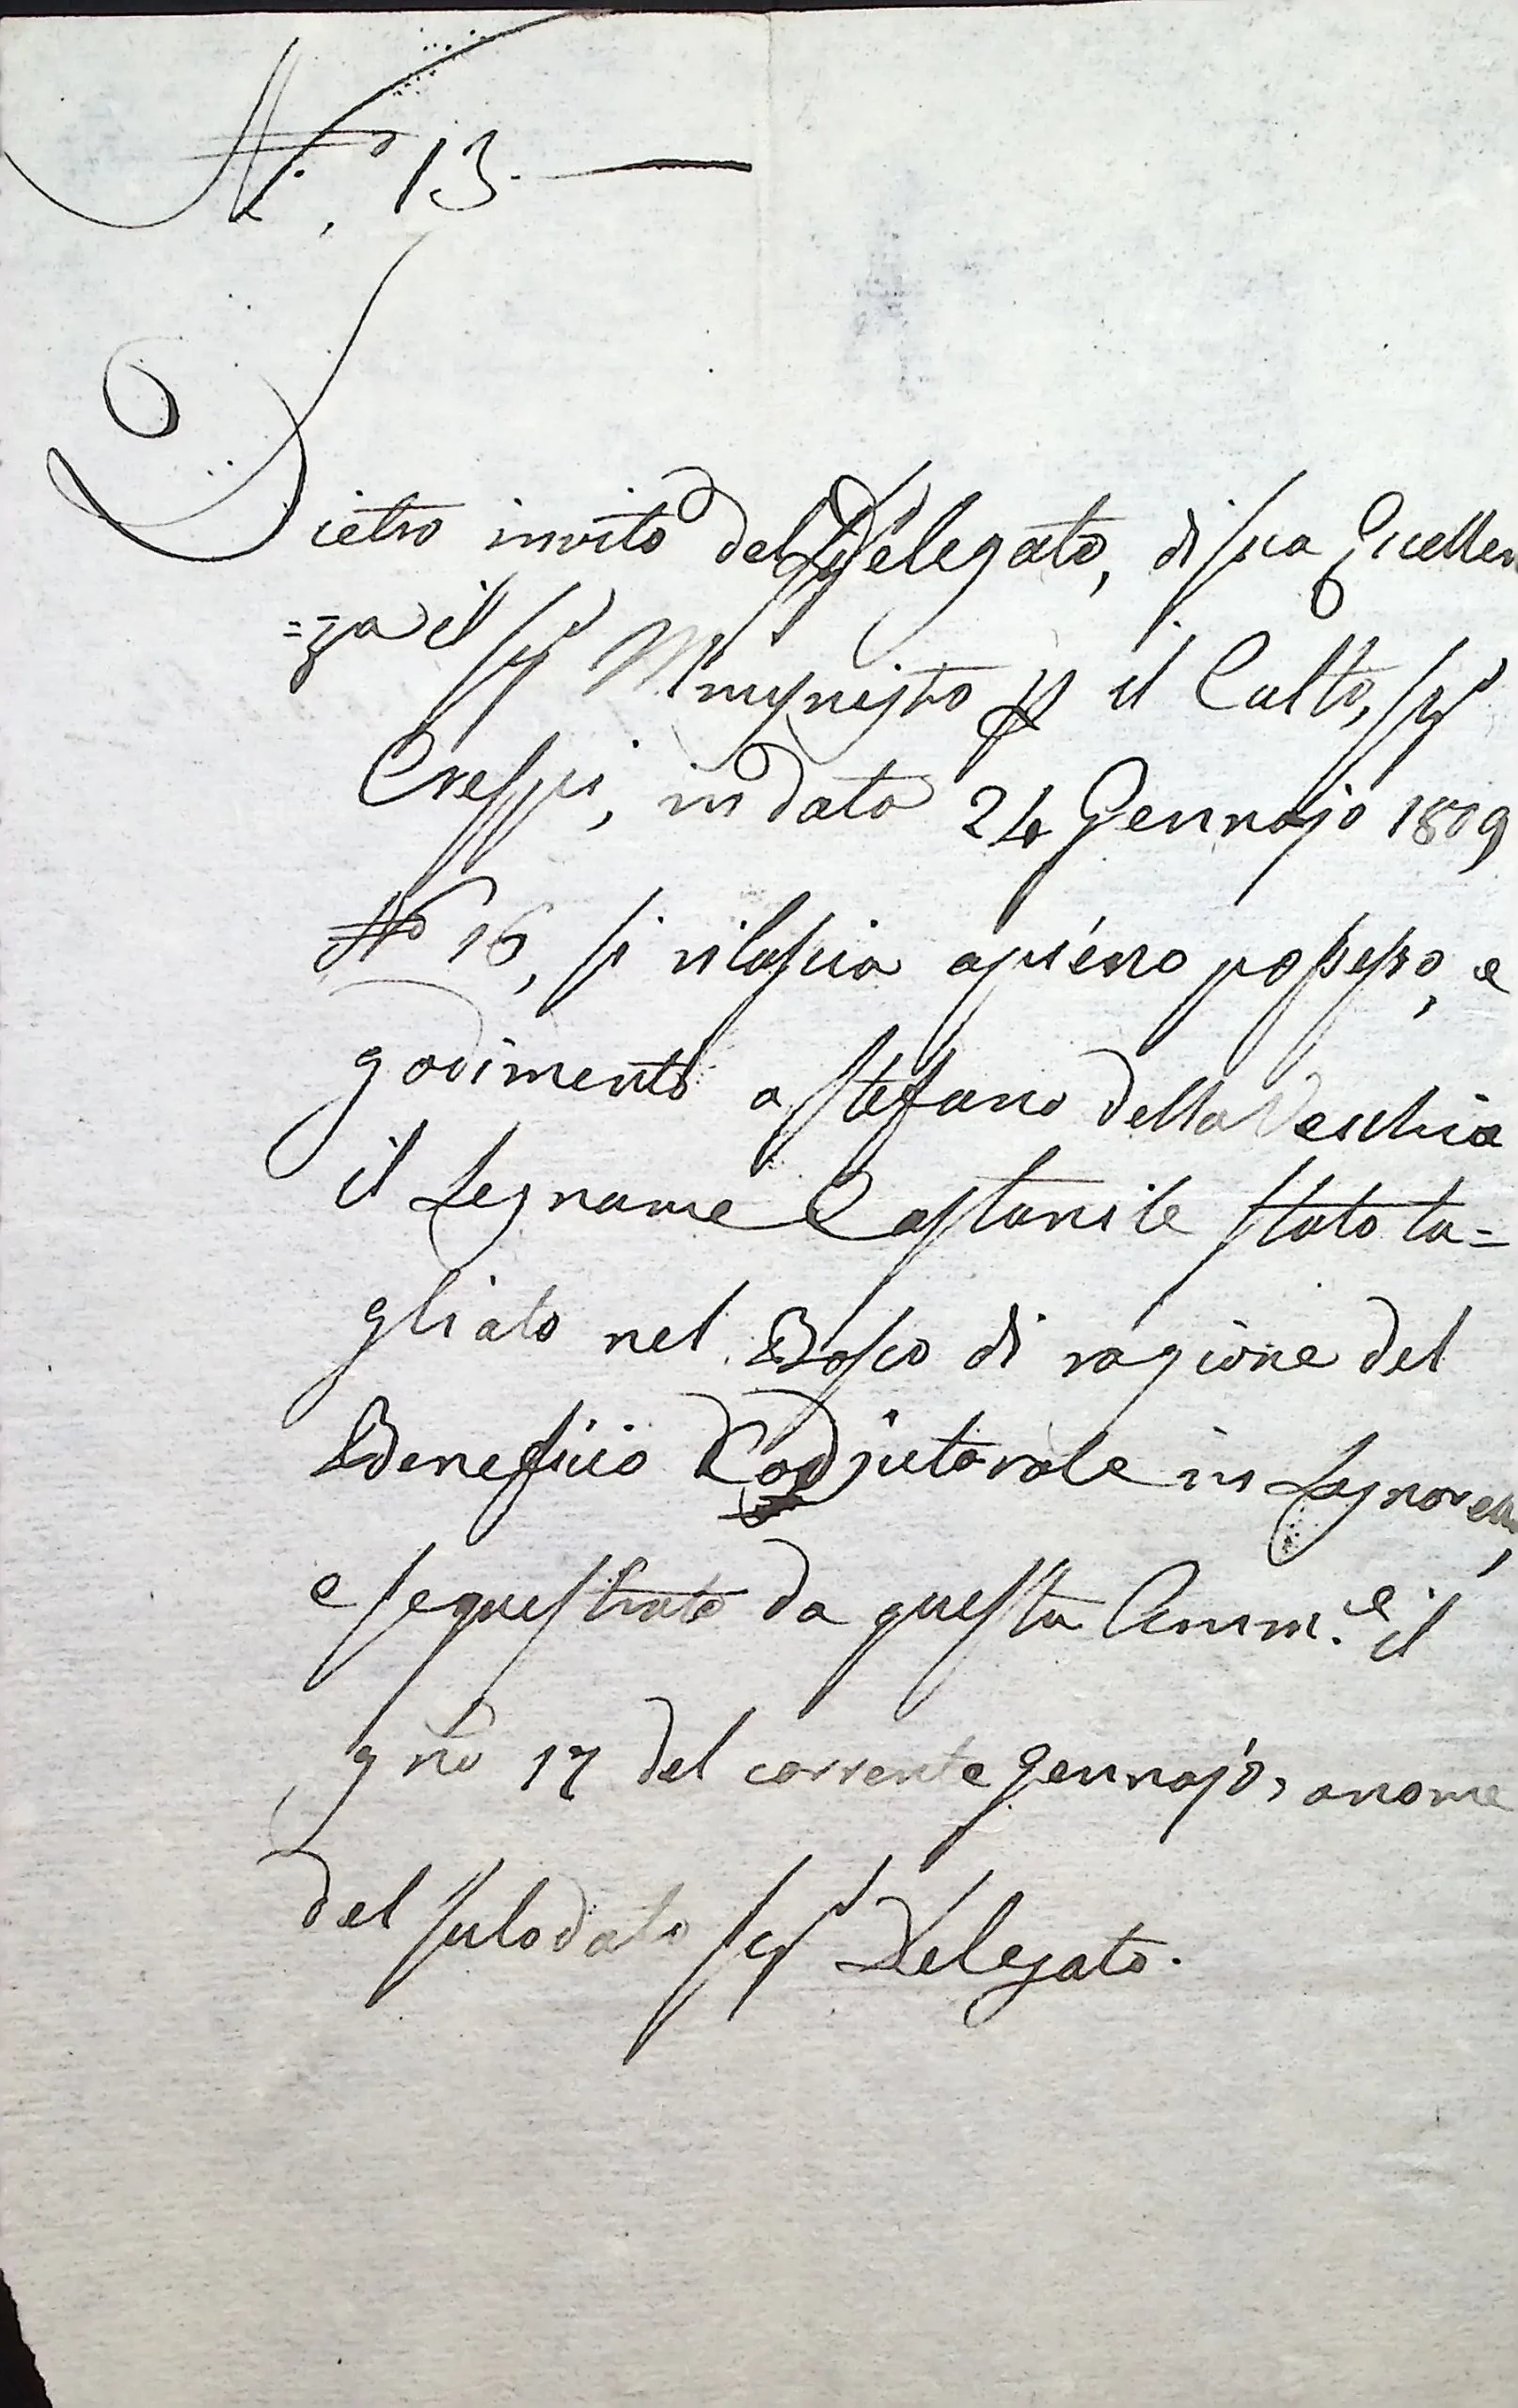 N.o 13.
Dietro invito del Delegato, di sua Eccellen
=za il Sigr Mingnistro p il Culto, Sigr
Crespi, in data 24 Gennajo 1809
No 16, si rilascia apieno possesso, e
godimento a Stefano della Vecchia
il Legname Castanile stato ta=
gliato nel Bosco di ragione del
Beneficio Coadjutorale in
e sequestrato da questa Amm.e il
gno 17 del corrente Gennajo, anome
del sulodato Sigr Delegato.